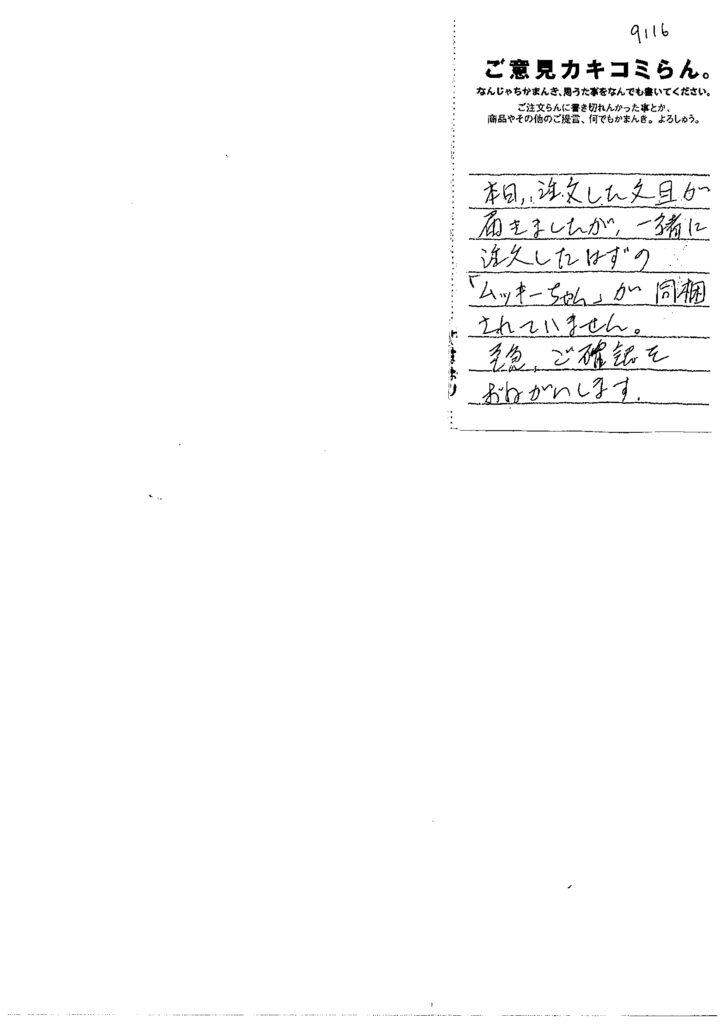 9116
ご意見カキコミらん。
なんじゃちかまんき、思うた事をなんでも書いてください。
ご注文らんに書き切れんかった事とか、
商品やその他のご提言、何でもかまんき。よろしゅう。
本日、注文した文旦が
届きましたが、一緒に
注文したはずの
「ムッキーちゃん」が同梱
されていません。
至急、ご確認を
おねがいします。